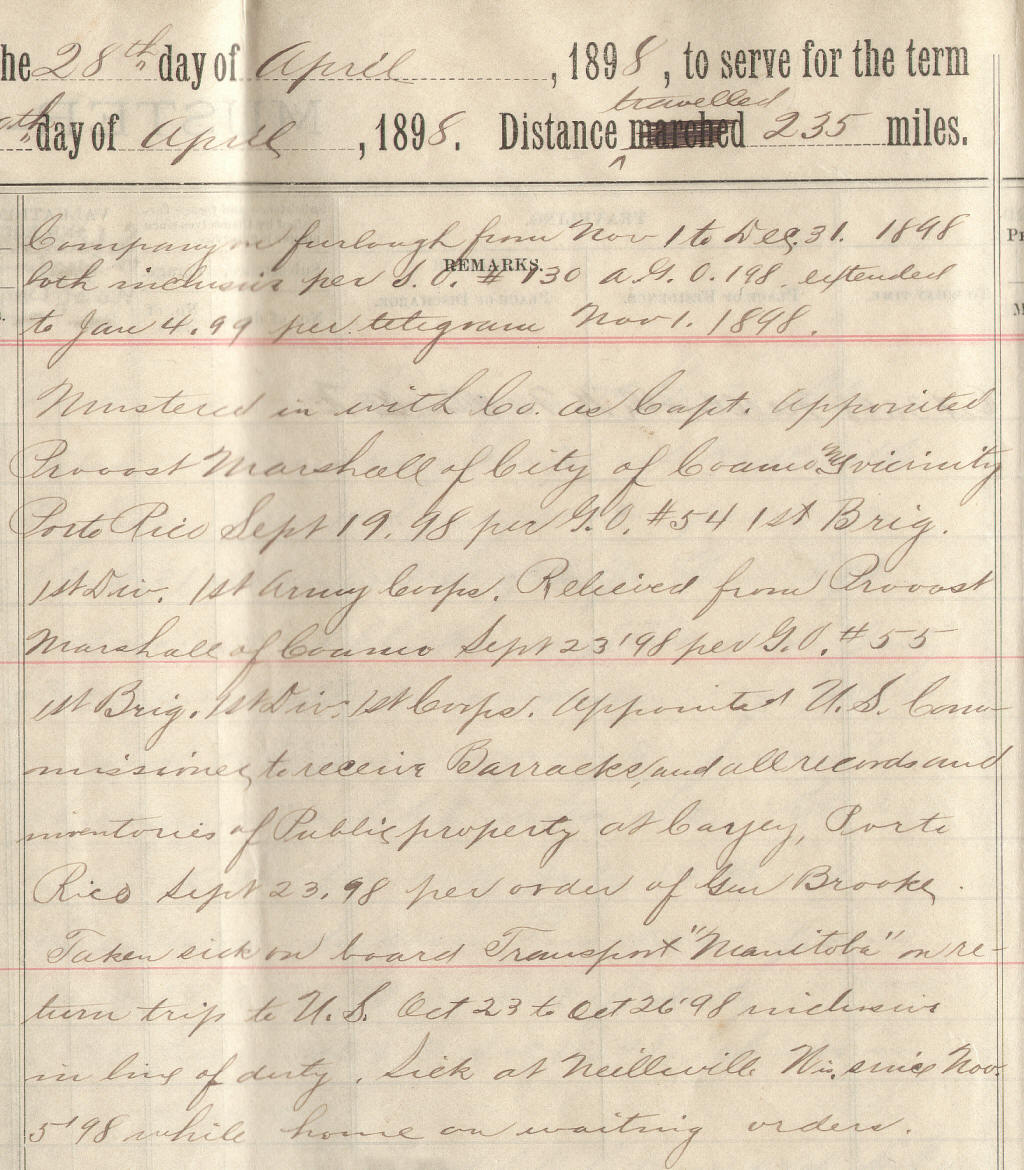 he 28th day of April, 1898, to serve for the term
travelled
day of April, 1898. Distance marched 235 miles.
Company on furlough from Nov 1 to Dec. 31. 1898
REMARKS.
both inclusive per S.O. # 130 A.G.O. 198. extended
to Jan 4. 99 per telegram Nov 1. 1898.
Mustered in with Co. as Capt. Appointed
Provost Marshall of City of Coamo and vicinity
Porto Rico Sept 19. 98 per G.O. #54 1st Brig.
1st Div. 1st Army Corps. Relieved from Provost
Marshall of Coamo Sept 23 '98 per G.O. #55
1st Brig. 1st Div. 1st Corps. Appointed U.S. Com-
missioner to receive Barracks, and all records and
inventories of Public property at Cayey, Porto
Rico Sept 23. 98 per order of Gen Brooke.
Taken sick on board Transport "Manitoba" on re-
turn trip to U.S. Oct 23 to Oct 26 '98 inclusive
in line of duty. Sick at Neillsville Wis. since Nov.
5 '98 while home on waiting orders.